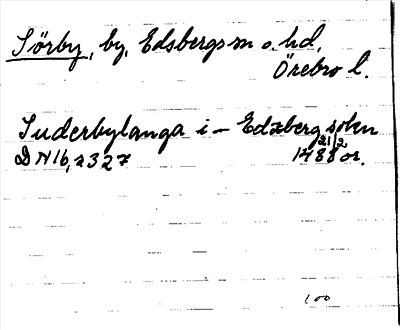 Sörby, by, Edsbergs sn o. hd,
Örebro l.
Suderbylanga i - Edzberg soken
21/2
DN 16, 2327 1488 or.
100